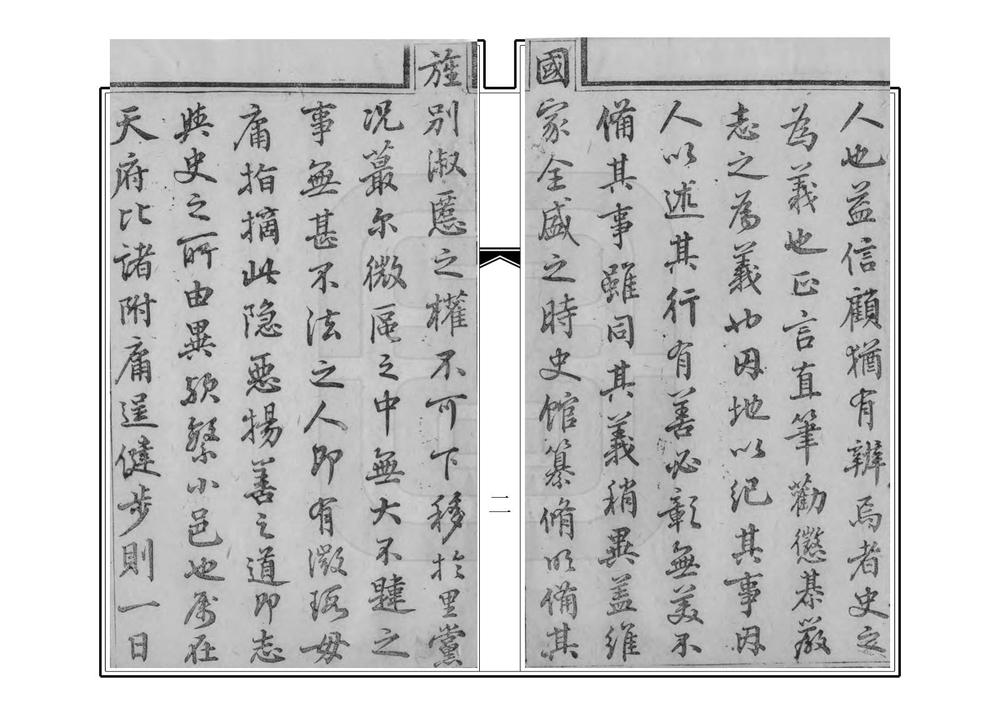 人也益信顧猶有辨焉者史之
為義也正言直筆勸懲綦嚴
志之為義也因地以紀其事因
人以述其行有善必彰無美不
備其事雖同其義稍異蓋維
國家全盛之時史館纂脩以備其
二
旌別淑慝之權不可下移於里黨
況蕞尔微區之中無大不韙之
事無甚不法之人即有微瑕毋
庸指摘此隐惡揚善之道即志
與史之所由異歟繁小邑也属在
天府比諸附庸逞健步則一日